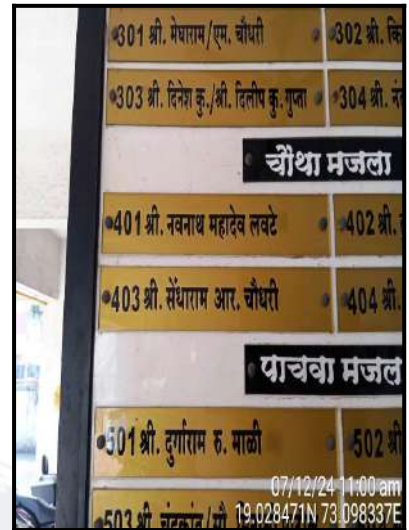 301 श्री. मेघाराम/एम. चौधरी 302 श्री.
303 श्री. दिनेश कु./श्री. दिलीप कु. गुप्ता 304 श्री.
चौथा मजला
401 श्री. नवनाथ महादेव लवटे 402 श्री.
403 श्री. सेंधाराम आर. चौधरी 404 श्री.
पाचवा मजल
501 श्री. दुर्गाराम रु. माळी 502 श्री
503 श्री. चंद्रकांत/सौ.
07/12/24 11:00 am
19.028471N 73.098337E